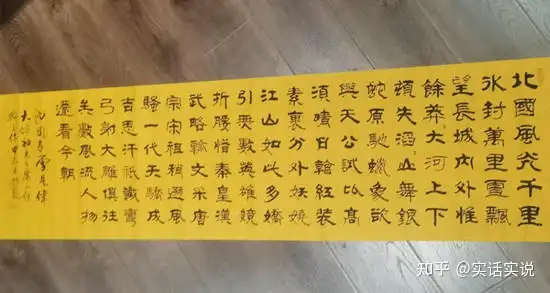 北國風光千里
冰封萬里雪飄
望長城内外惟
餘莽大河上下
頓失滔〻山舞銀
蛇原馳蠟象欲
與天公試比高
須晴日看紅装
素裹分外妖嬈
江山如此多嬌
引無數英雄競
折腰惜秦皇漢
武略輸文采唐
宗宋祖稍遜風
騷一代天驕成
吉思汗祇識彎
弓射大雕俱往
矣數風流人物
還看今朝
沁園春雪
知乎 @实话实说